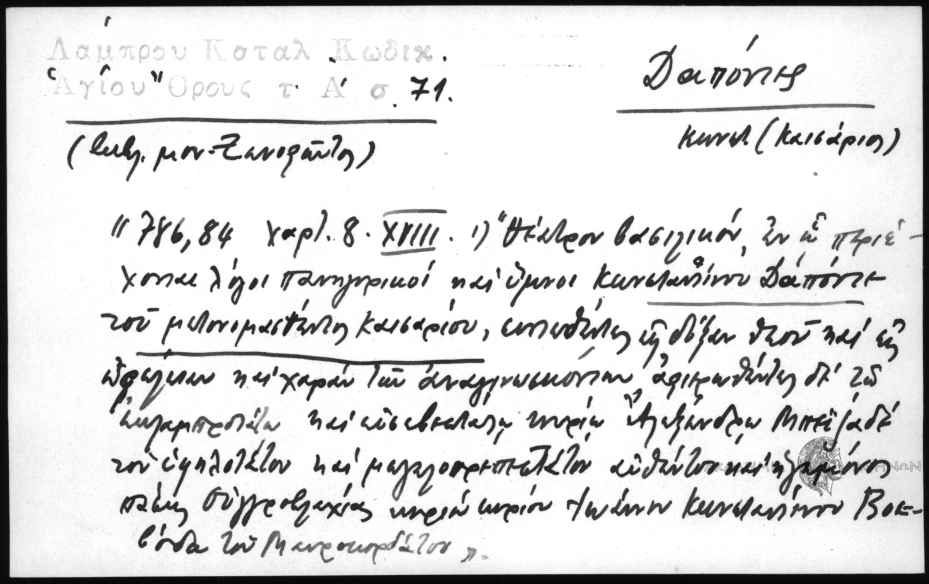 Λάμπρου Καταλ. Κωδικ.
Ἁγίου Ὄρους τ. Α΄ σ. 71.
Δαπόντες
(βιβλ. μον. Ξενοφῶντος)
Κωνστ. (Καισάριος)
"786,84 χαρτ. 8. XVIII. 1) "Θέατρον βασιλικόν, ἐν ᾧ περιέ-
χονται λόγοι πανηγυρικοί καί ὕμνοι Κωνσταντίνου Δαπόντε
τοῦ μετονομασθέντος Καισαρίου, συντεθέντες εἰς δόξαν θεοῦ καί εἰς
ὠφέλειαν καί χαράν τῶν ἀναγινωσκόντων, ἀφιερωθέντες δέ τῷ
ἐκλαμπροτάτῳ καί εὐσεβεστάτῳ κυρίῳ Ἀλεξάνδρῳ Μπεϊζαδέ
τοῦ ὑψηλοτάτου καί μεγαλοπρεπεστάτου αὐθέντου καί ἡγεμόνος
πάσης Οὐγγροβλαχίας κυρίου κυρίου Ἰωάννου Κωνσταντίνου Βοε-
βόνδα τοῦ Μαυροκορδάτου".